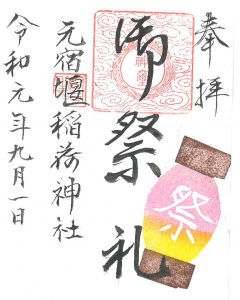 奉拝
御祭礼
祭
元宿堰稲荷神社
令和元年九月一日